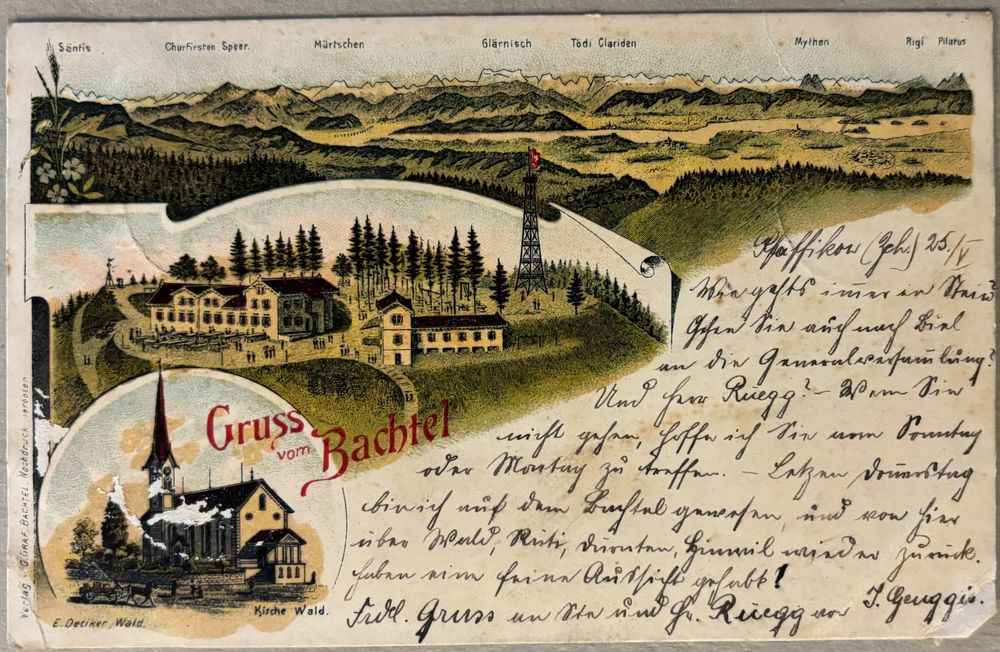 Säntis Churfirsten Speer. Mürtschen Glärnisch Tödi Clariden Mythen Rigi Pilatus
Pfäffikon (Zch.) 25./V
Wie gehts immer in Stein?
Gehen Sie auch nach Biel
an die Generalversammlung?
Und Herr Rüegg? – Wenn Sie
nicht gehen, hoffe ich Sie am Sonntag
oder Montag zu treffen. – Letzen Donerstag
bin ich auf dem Bachtel gewesen, und von hier
über Wald, Rüti, Dürnten, Hinwil wieder zurück.
Haben eine feine Aussicht gehabt!
Frdl. Gruss an Sie und Hr. Rüegg von
Gruss
vom Bachtel
Kirche Wald.
E. Oetiker, Wald.
Verlag v. O. GRAF. BACHTEL. Nachdruck verboten